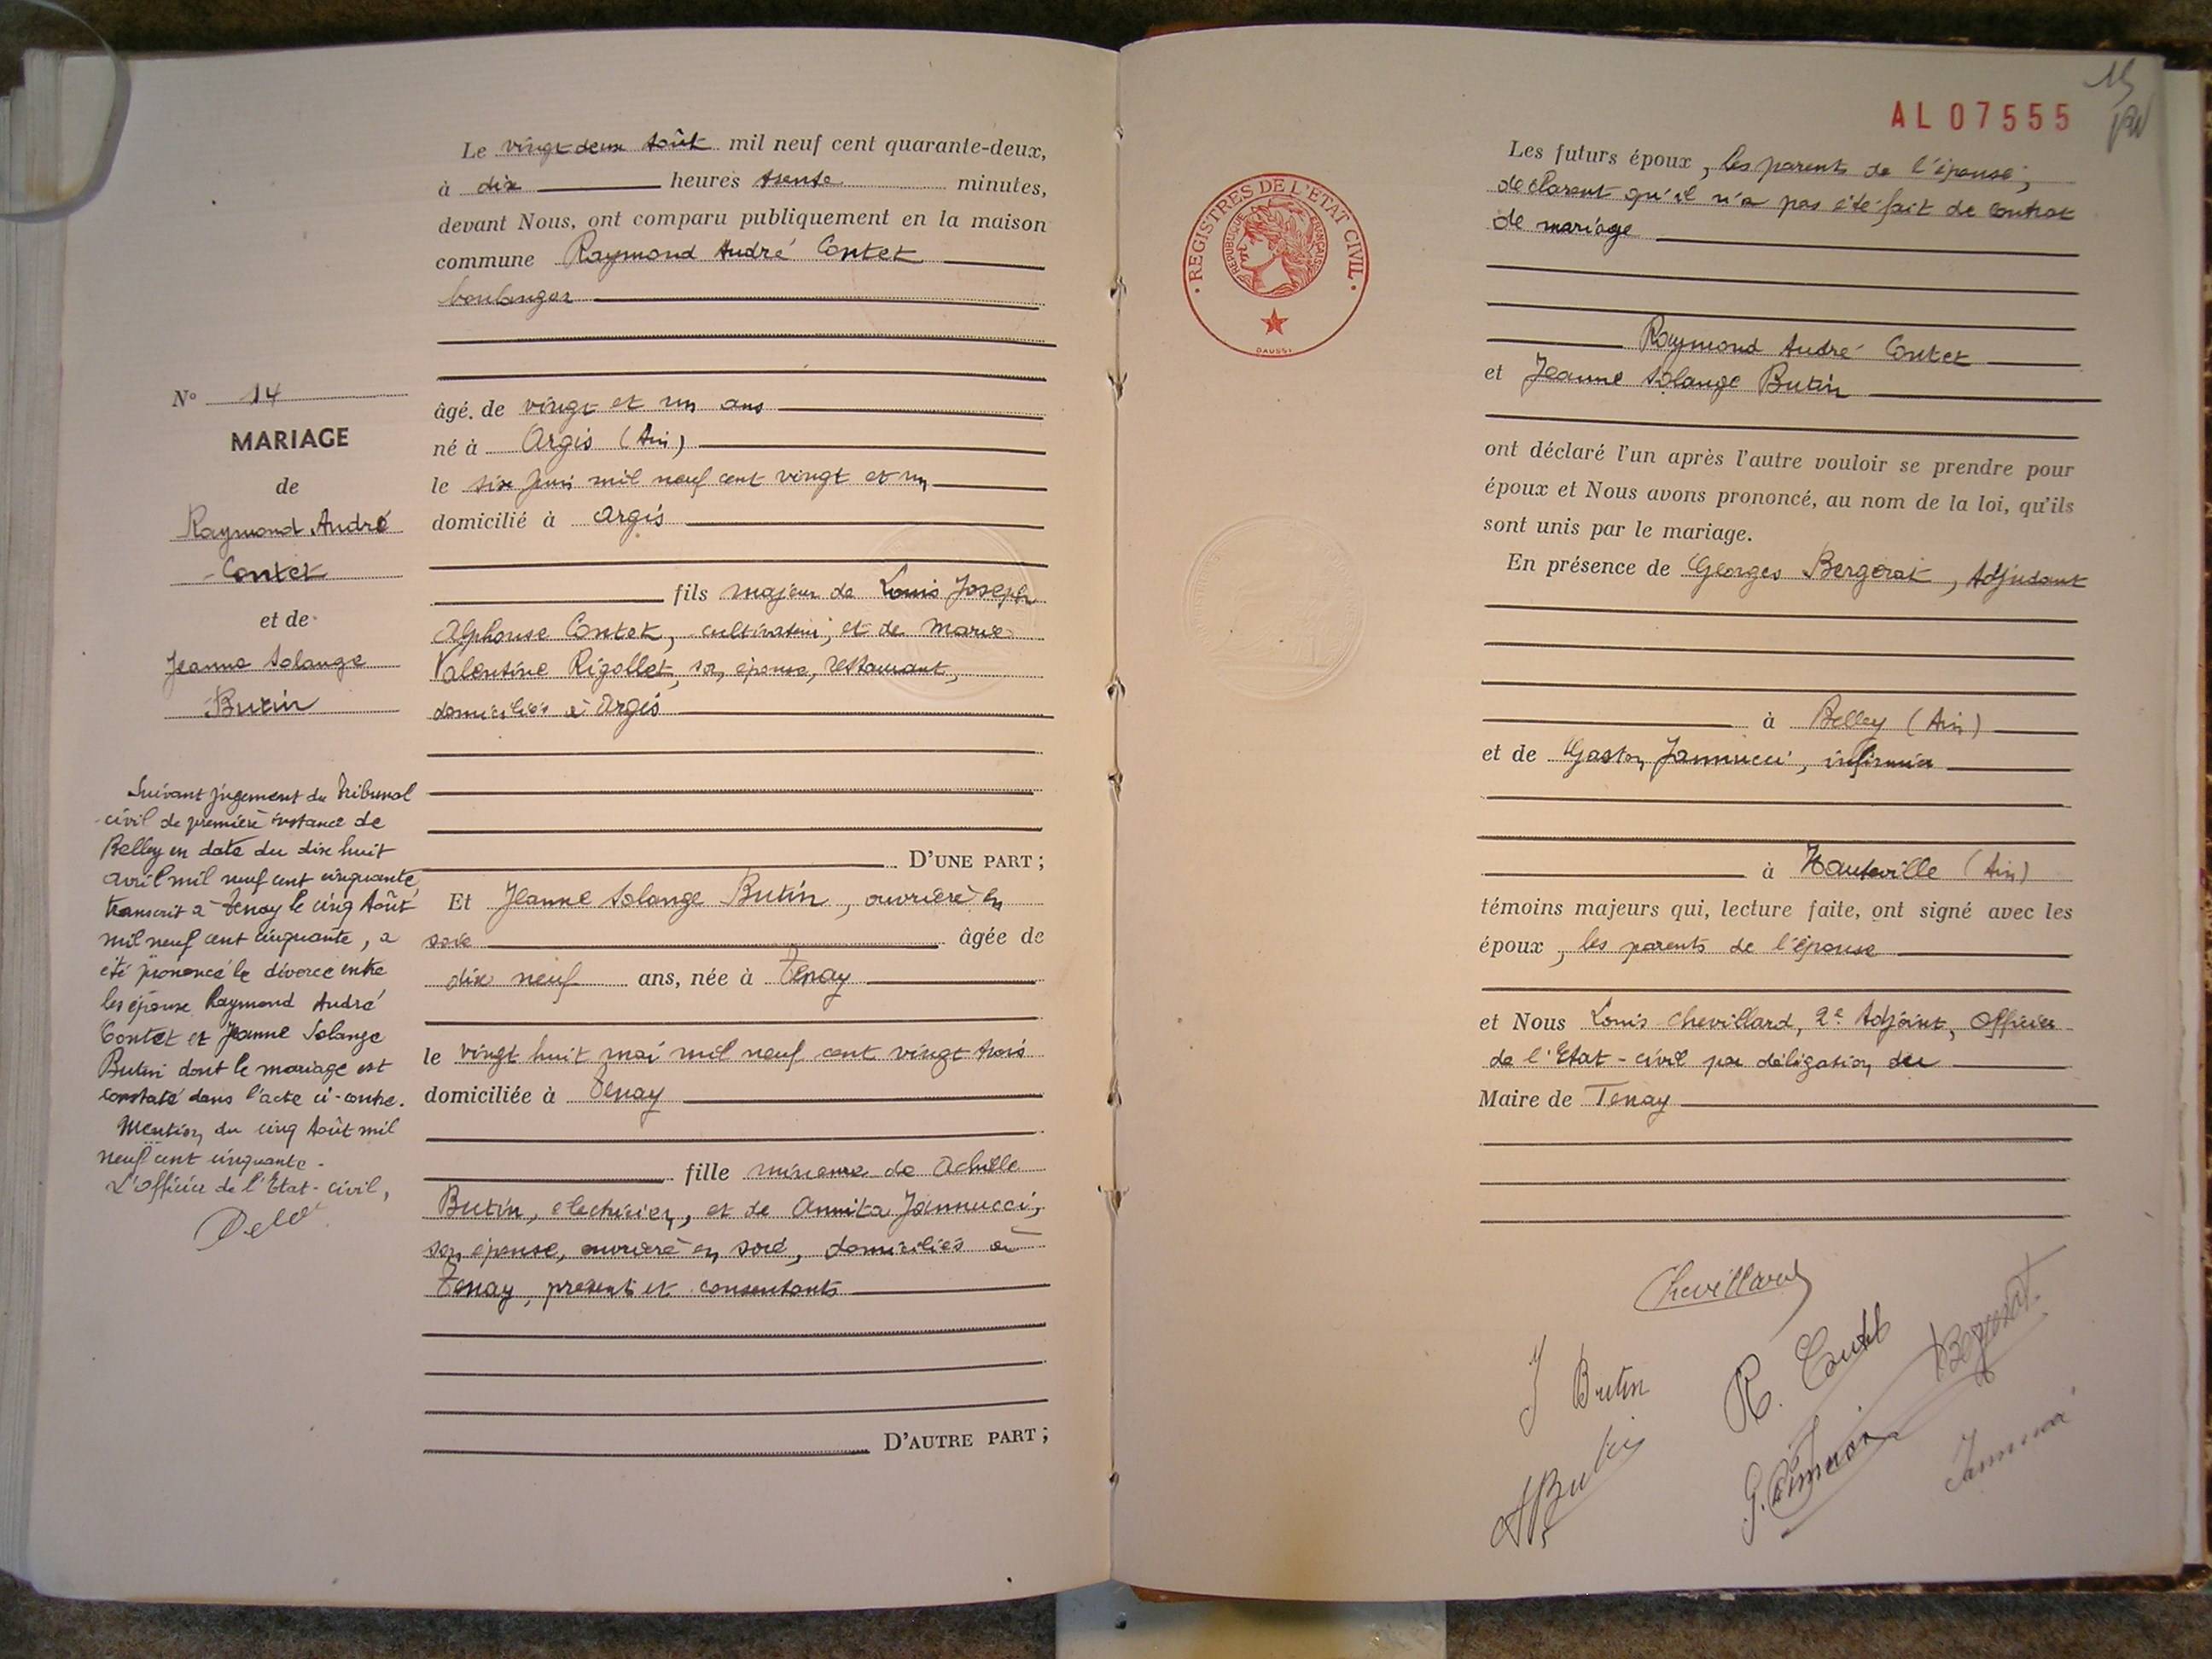 Le vingt deux Août mil neuf cent quarante-deux,
à dix heures trente minutes,
devant Nous, ont comparu publiquement en la maison
commune Raymond André Contet
boulanger
âgé de vingt et un ans
né à Argis (Ain)
le six juin mil neuf cent vingt et un
domicilié à Argis
fils majeur de Louis Joseph
Alphonse Contet, cultivateur, et de Marie
Valentine Rigollet, son épouse, restaurant,
domiciliés à Argis
D'UNE PART ;
Et Jeanne Solange Butin, ouvrière en
soie âgée de
dix neuf ans, née à Tenay
le vingt huit mai mil neuf cent vingt trois
domiciliée à Tenay
fille mineure de Achille
Butin, électricien, et de Annita Jannucci,
son épouse, ouvrière en soie, domiciliés à
Tenay, présents et consentants
D'AUTRE PART ;
N° 14
MARIAGE
de
Raymond André
Contet
et de
Jeanne Solange
Butin
Suivant jugement du Tribunal
civil de première instance de
Belley en date du dix huit
avril mil neuf cent cinquante,
transcrit à Tenay le cinq Août
mil neuf cent cinquante, a
été prononcé le divorce entre
les époux Raymond André
Contet et Jeanne Solange
Butin dont le mariage est
constaté dans l'acte ci-contre.
Mention du cinq Août mil
neuf cent cinquante.
L'officier de l'Etat-civil,
15
AL 07555
REGISTRES DE L'ETAT CIVIL
REPUBLIQUE FRANÇAISE
DAUSSI
Les futurs époux, les parents de l'épouse,
déclarent qu'il n'a pas été fait de contrat
de mariage
Raymond André Contet
et Jeanne Solange Butin
ont déclaré l'un après l'autre vouloir se prendre pour
époux et Nous avons prononcé, au nom de la loi, qu'ils
sont unis par le mariage.
En présence de Georges Bergerat, Adjudant
à Belley (Ain)
et de Gaston Jannucci, infirmier
à Hauteville (Ain)
témoins majeurs qui, lecture faite, ont signé avec les
époux, les parents de l'épouse
et Nous Louis Chevillard, 2e Adjoint, Officier
de l'Etat-civil par délégation du
Maire de Tenay
Chevillard
J Butin
R. Contet
Bergerat
A Butin
Jannucci